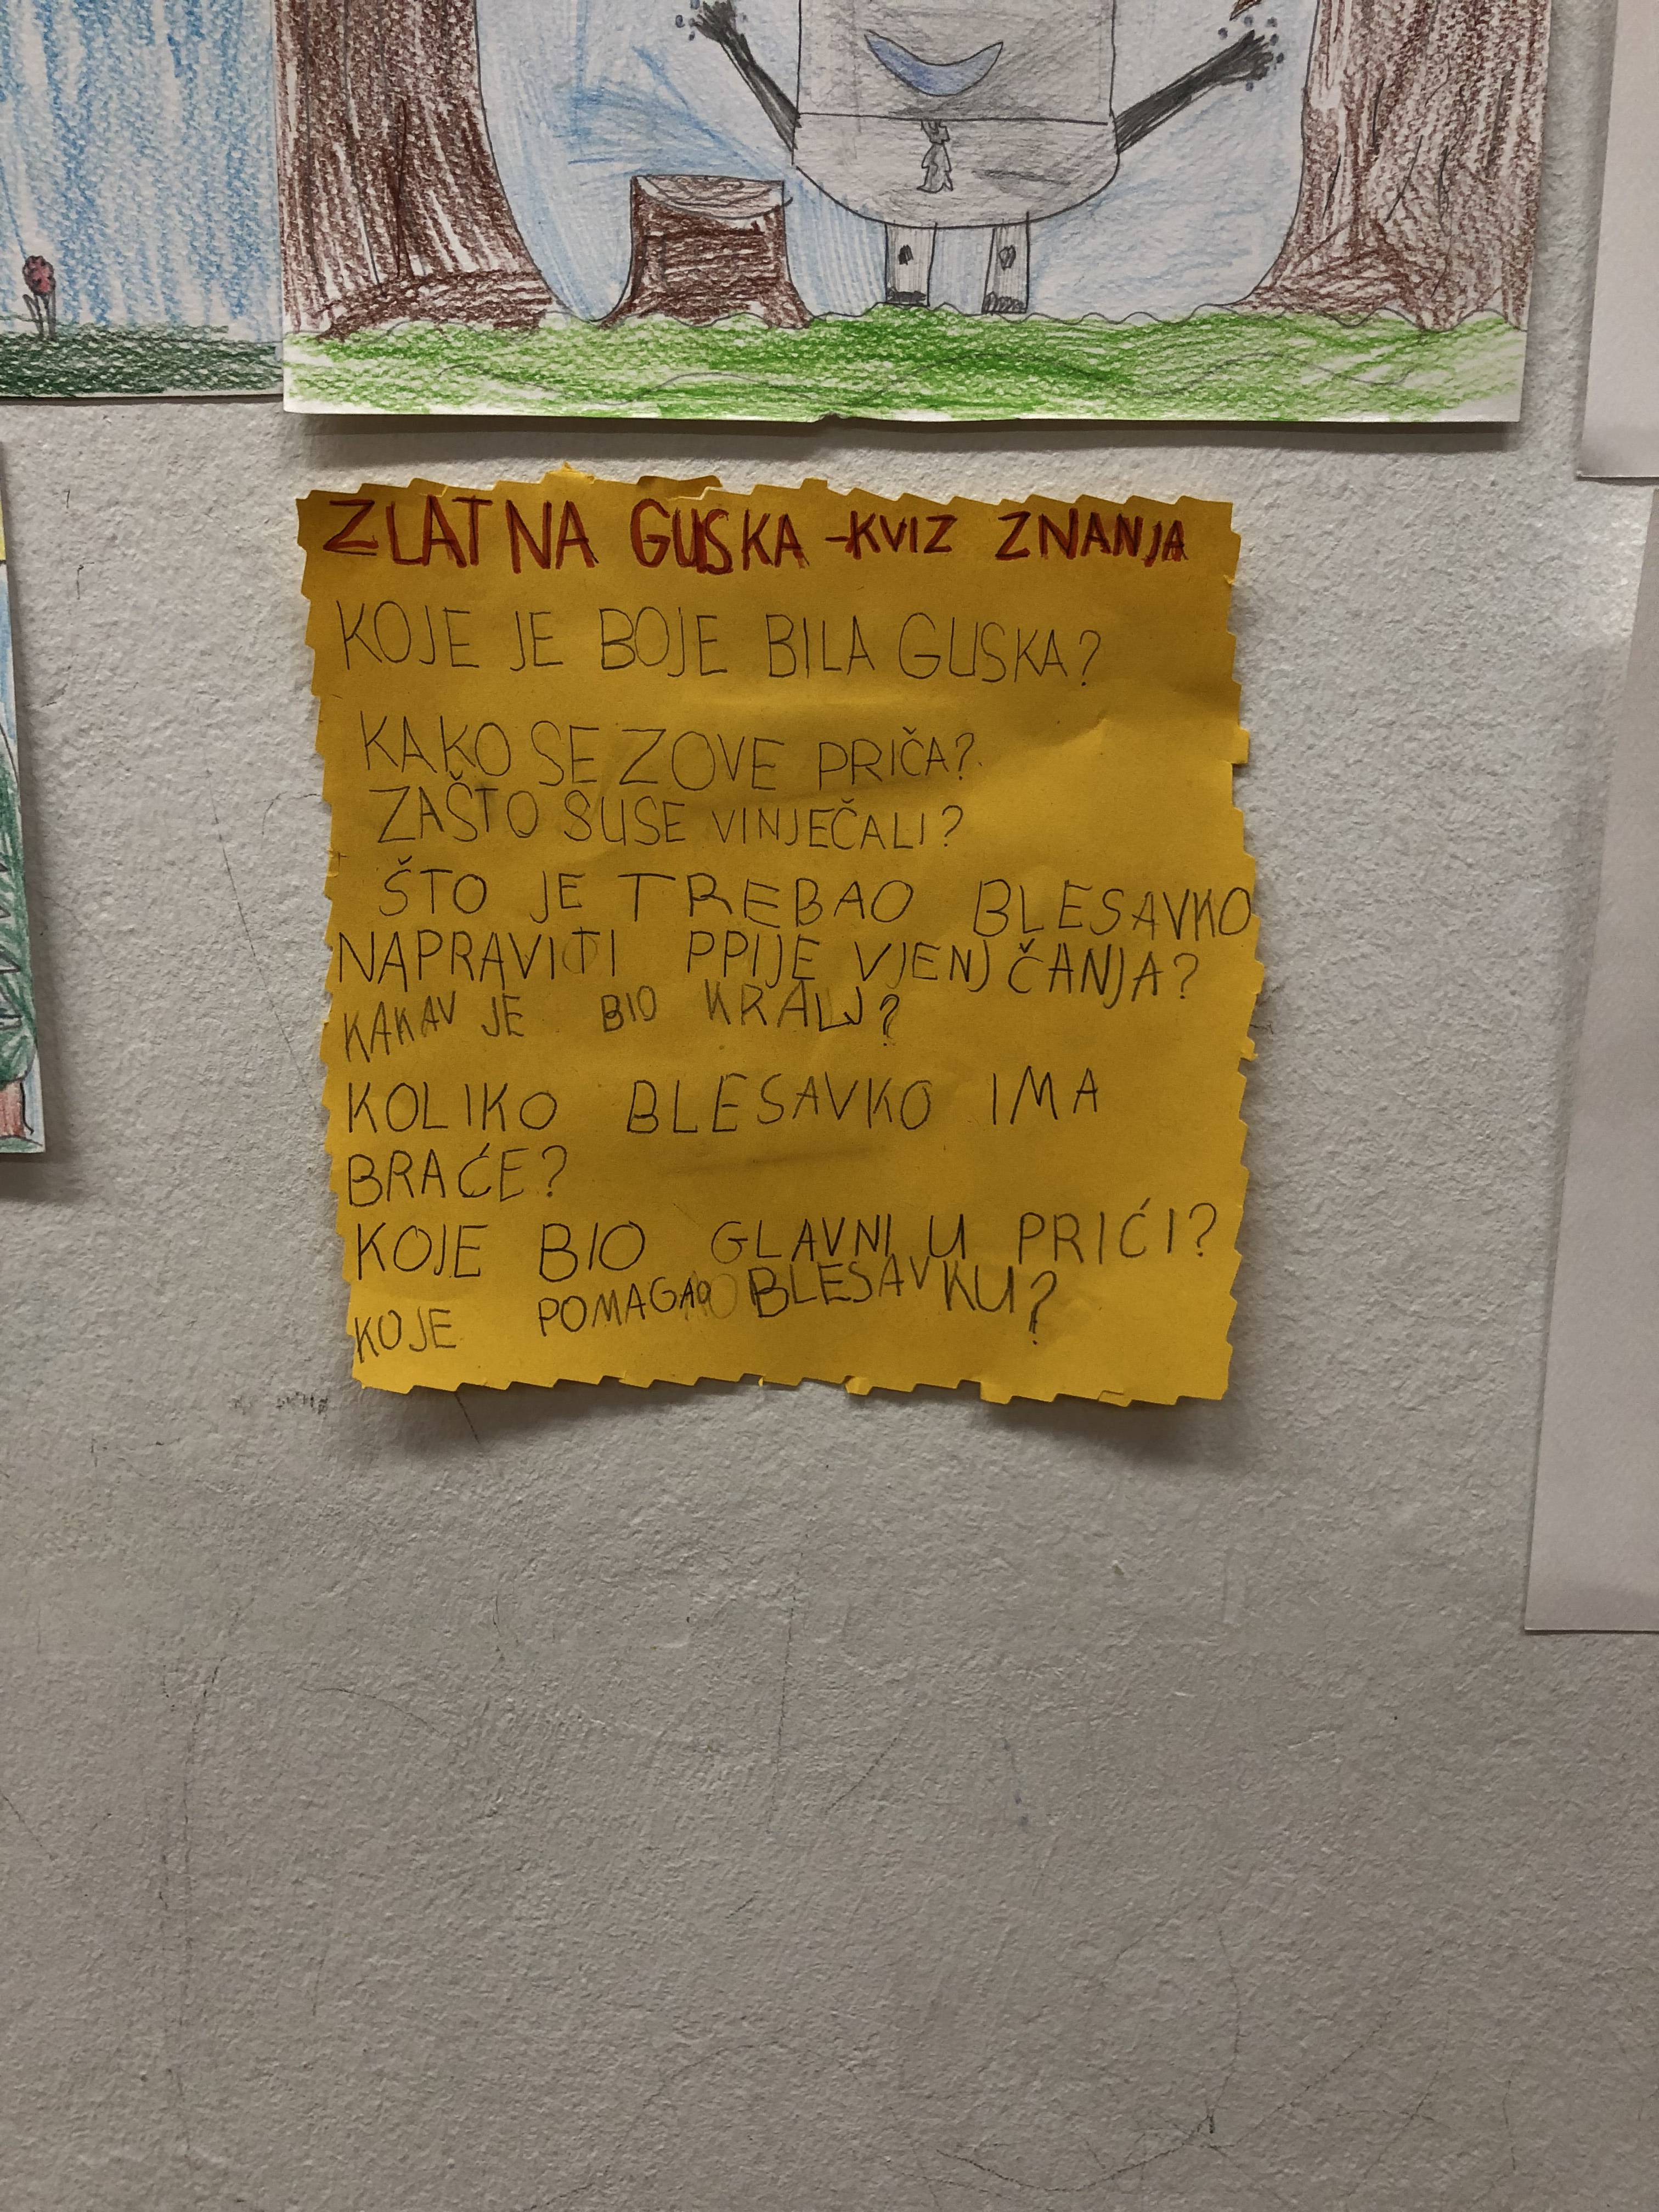 ZLATNA GUSKA -KVIZ ZNANJA
KOJE JE BOJE BILA GUSKA?
KAKO SE ZOVE PRIČA?
ZAŠTO SUSE VINJEČALI?
ŠTO JE TREBAO BLESAVKO
NAPRAVITI PPIJE VJENJČANJA?
KAKAV JE BIO KRALJ?
KOLIKO BLESAVKO IMA
BRAĆE?
KOJE BIO GLAVNI U PRIĆI?
KOJE POMAGAO BLESAVKU?